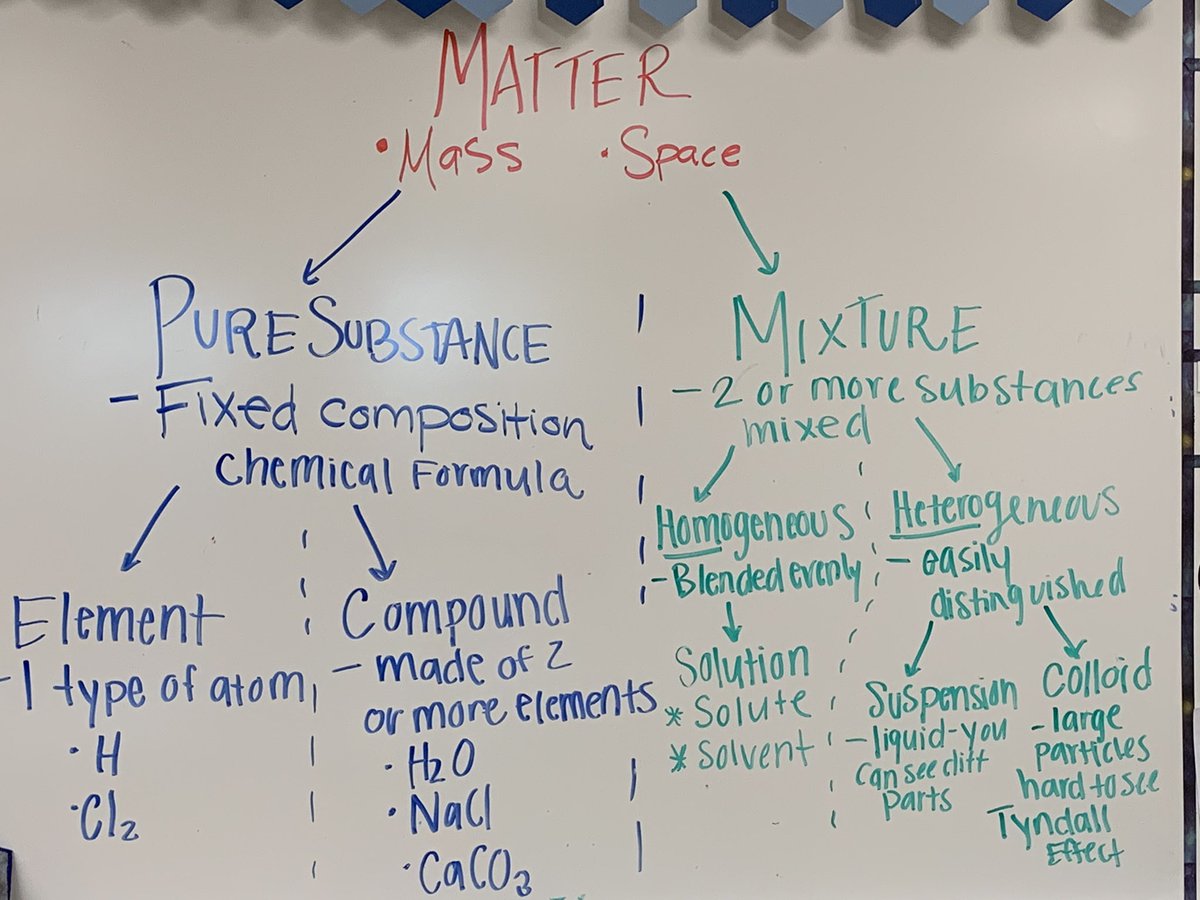 MATTER
• Mass • Space
PURE SUBSTANCE
- Fixed composition
chemical Formula
Element
- 1 type of atom
• H
• Cl₂
Compound
- made of 2
or more elements
• H₂O
• NaCl
• CaCO₃
MIXTURE
- 2 or more substances
mixed
Homogeneous
- Blended evenly
Solution
* Solute
* Solvent
Heterogeneous
- easily
distinguished
Suspension
- liquid-you
can see diff
parts
Colloid
- large
particles
hard to see
Tyndall
Effect